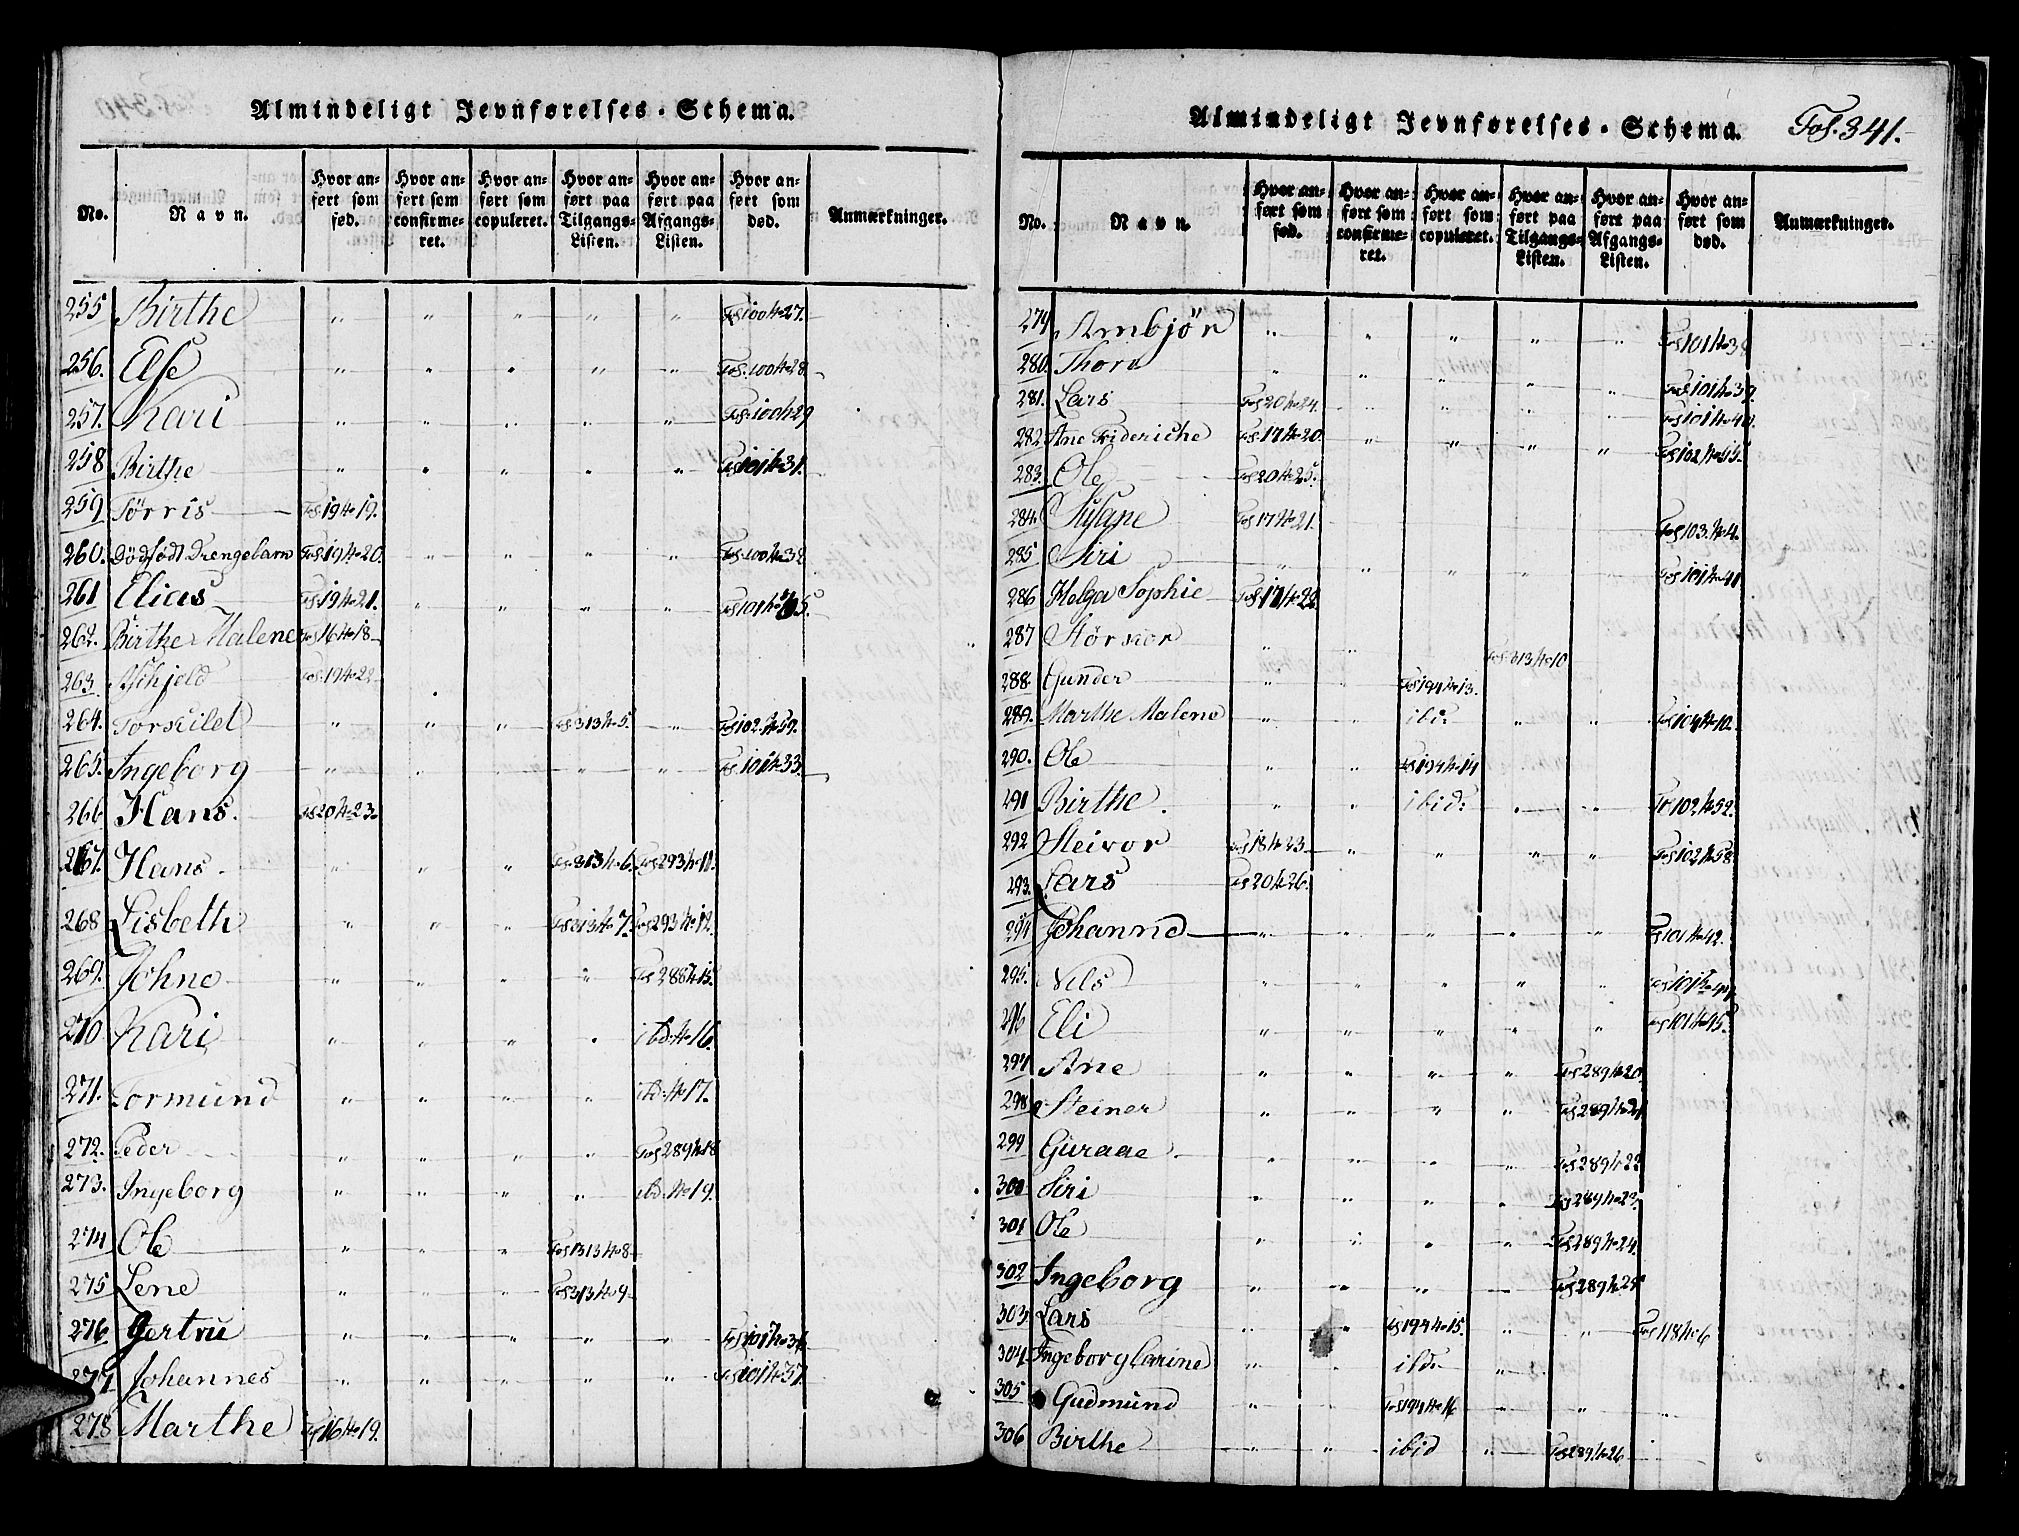 Almindeligt Jevnførelses-Schema.
No. Navn. Hvor anført som fød. Hvor anført som confirmeret. Hvor anført som copuleret. Hvor anført paa Tilgangs-Listen. Hvor anført paa Afgangs-Listen. Hvor anført som død. Anmærkninger.
255 Birthe „ „ „ „ „ Fol 100 No 27.
256. Else „ „ „ „ „ Fol. 100 No 28.
257. Kari „ „ „ „ „ Fol. 100 No 29
258 Birthe „ „ „ „ „ Fol 101 No 31.
259 Tørris Fol. 19 No 19.
260. Dødfødt Drengebarn Fol 19 No 20. „ „ „ „ Fol. 100 No 32
261 Elias Fol 19 No 21. „ „ „ „ Fol 101 No 35
262. Birthe Malene Fol 16 No 18
263. Fol. 19 No 22
264. Torkild „ „ „ Fol 313 No 5. „ Fol 102 No 59.
265. Ingeborg „ „ „ „ „ Fol. 101 No 33.
266 Hans. Fol 20 No 23.
267. Hans. „ „ „ Fol 313 No 6. Fol 293 No 11.
268 Lisbeth „ „ „ Fol 313 No 7. Fol 293 No 12.
269. Johne „ „ „ „ Fol 288 No 15.
270 Kari „ „ „ „ ibd. No 16.
271. Tormund „ „ „ „ ibd. No 17.
272. Peder „ „ „ „ Fol 289 No 18
273. Ingeborg „ „ „ „ ibd. No 19.
274 Ole „ „ „ Fol 313 No 8
275 Lene „ „ „ Fol 313 No 9
276 Gertru „ „ „ „ „ Fol 101 No 36
277 Johannes „ „ „ „ „ Fol 101 No 37.
278 Marthe Fol 16 No 19.
Almindeligt Jevnførelses-Schema. Fol. 341.
No. Navn. Hvor anført som fød. Hvor anført som confirmeret. Hvor anført som copuleret. Hvor anført paa Tilgangs-Listen. Hvor anført paa Afgangs-Listen. Hvor anført som død. Anmærkninger.
279 Anbjør „ „ „ „ „ Fol 101 No 38
280. Thora „ „ „ „ „ Fol 101 No 39.
281. Lars Fol 20 No 24. „ „ „ „ Fol 101 No 40.
282 Ane Frideriche Fol. 17 No 20. „ „ „ „ Fol 102 No 45.
283. Ole Fol 20 No 25.
284. Susane Fol 17 No 21. Fol 103. No 4.
285 Siri „ „ „ „ „ Fol 101 No 41
286 Helga Sophie Fol. 17 No 22.
287 „ „ Fol. 313 No 10
288 Gunder „ „ Fol 194 No 13.
289. Marthe Malene „ „ ibid „ „ Fol 104 No 12.
290. Ole „ „ Fol 194 No 14
291 Birthe. „ „ ibid: „ „ Fol 102 No 52.
292 Steivor Fol 18 No 23. „ „ „ „ Fol 102 No 58.
293. Lars Fol 20 No 26.
294 Johanne „ „ „ „ „ Fol 101 No 42.
295. Nils „ „ „ „ „ Fol 101 No 44
296 Eli „ „ „ „ „ Fol 101 No 45.
297 Ane „ „ „ „ Fol 289 No 20.
298 Steiner „ „ „ „ Fol 289 No 21
299 Guraae „ „ „ „ Fol 289 No 22
300 Siri „ „ „ „ Fol 289 No 23.
301 Ole „ „ „ „ Fol 289 No 24.
302 Ingeborg „ „ „ „ Fol 289 No 25
303. Lars „ „ Fol 194 No 15. „ „ Fol 118 No 6
304. Ingeborg Carine „ „ ibd: „
305 Gudmund „ „ Fol 194 No 16 „ „
306 Birthe „ „ ibid „ Fol 289. No 26